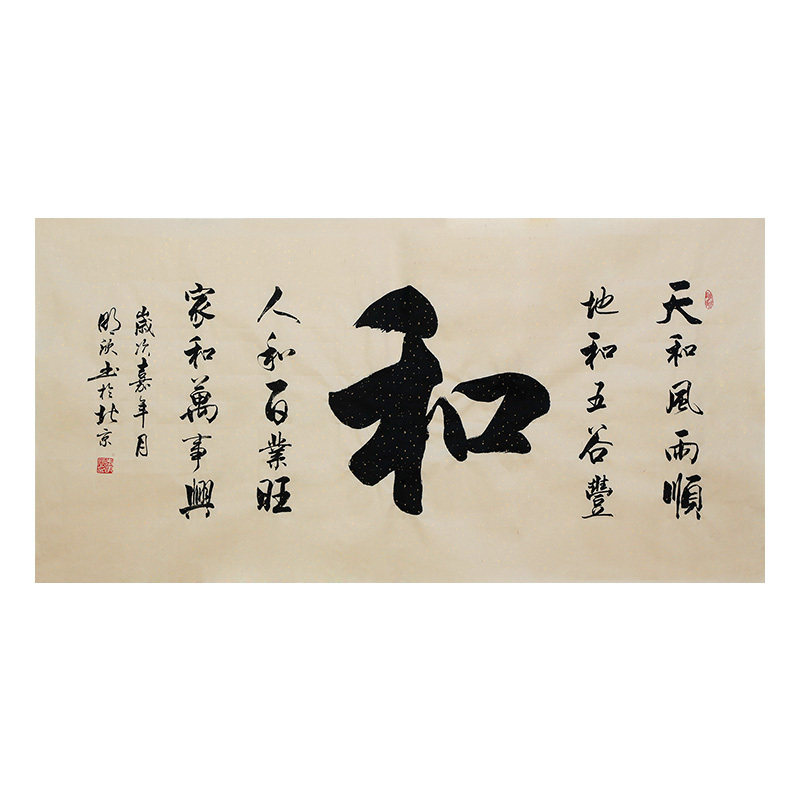 天和風雨順
地和五谷豐
和
人和百業旺
家和萬事興
歲次嘉年月
明欣书於北京